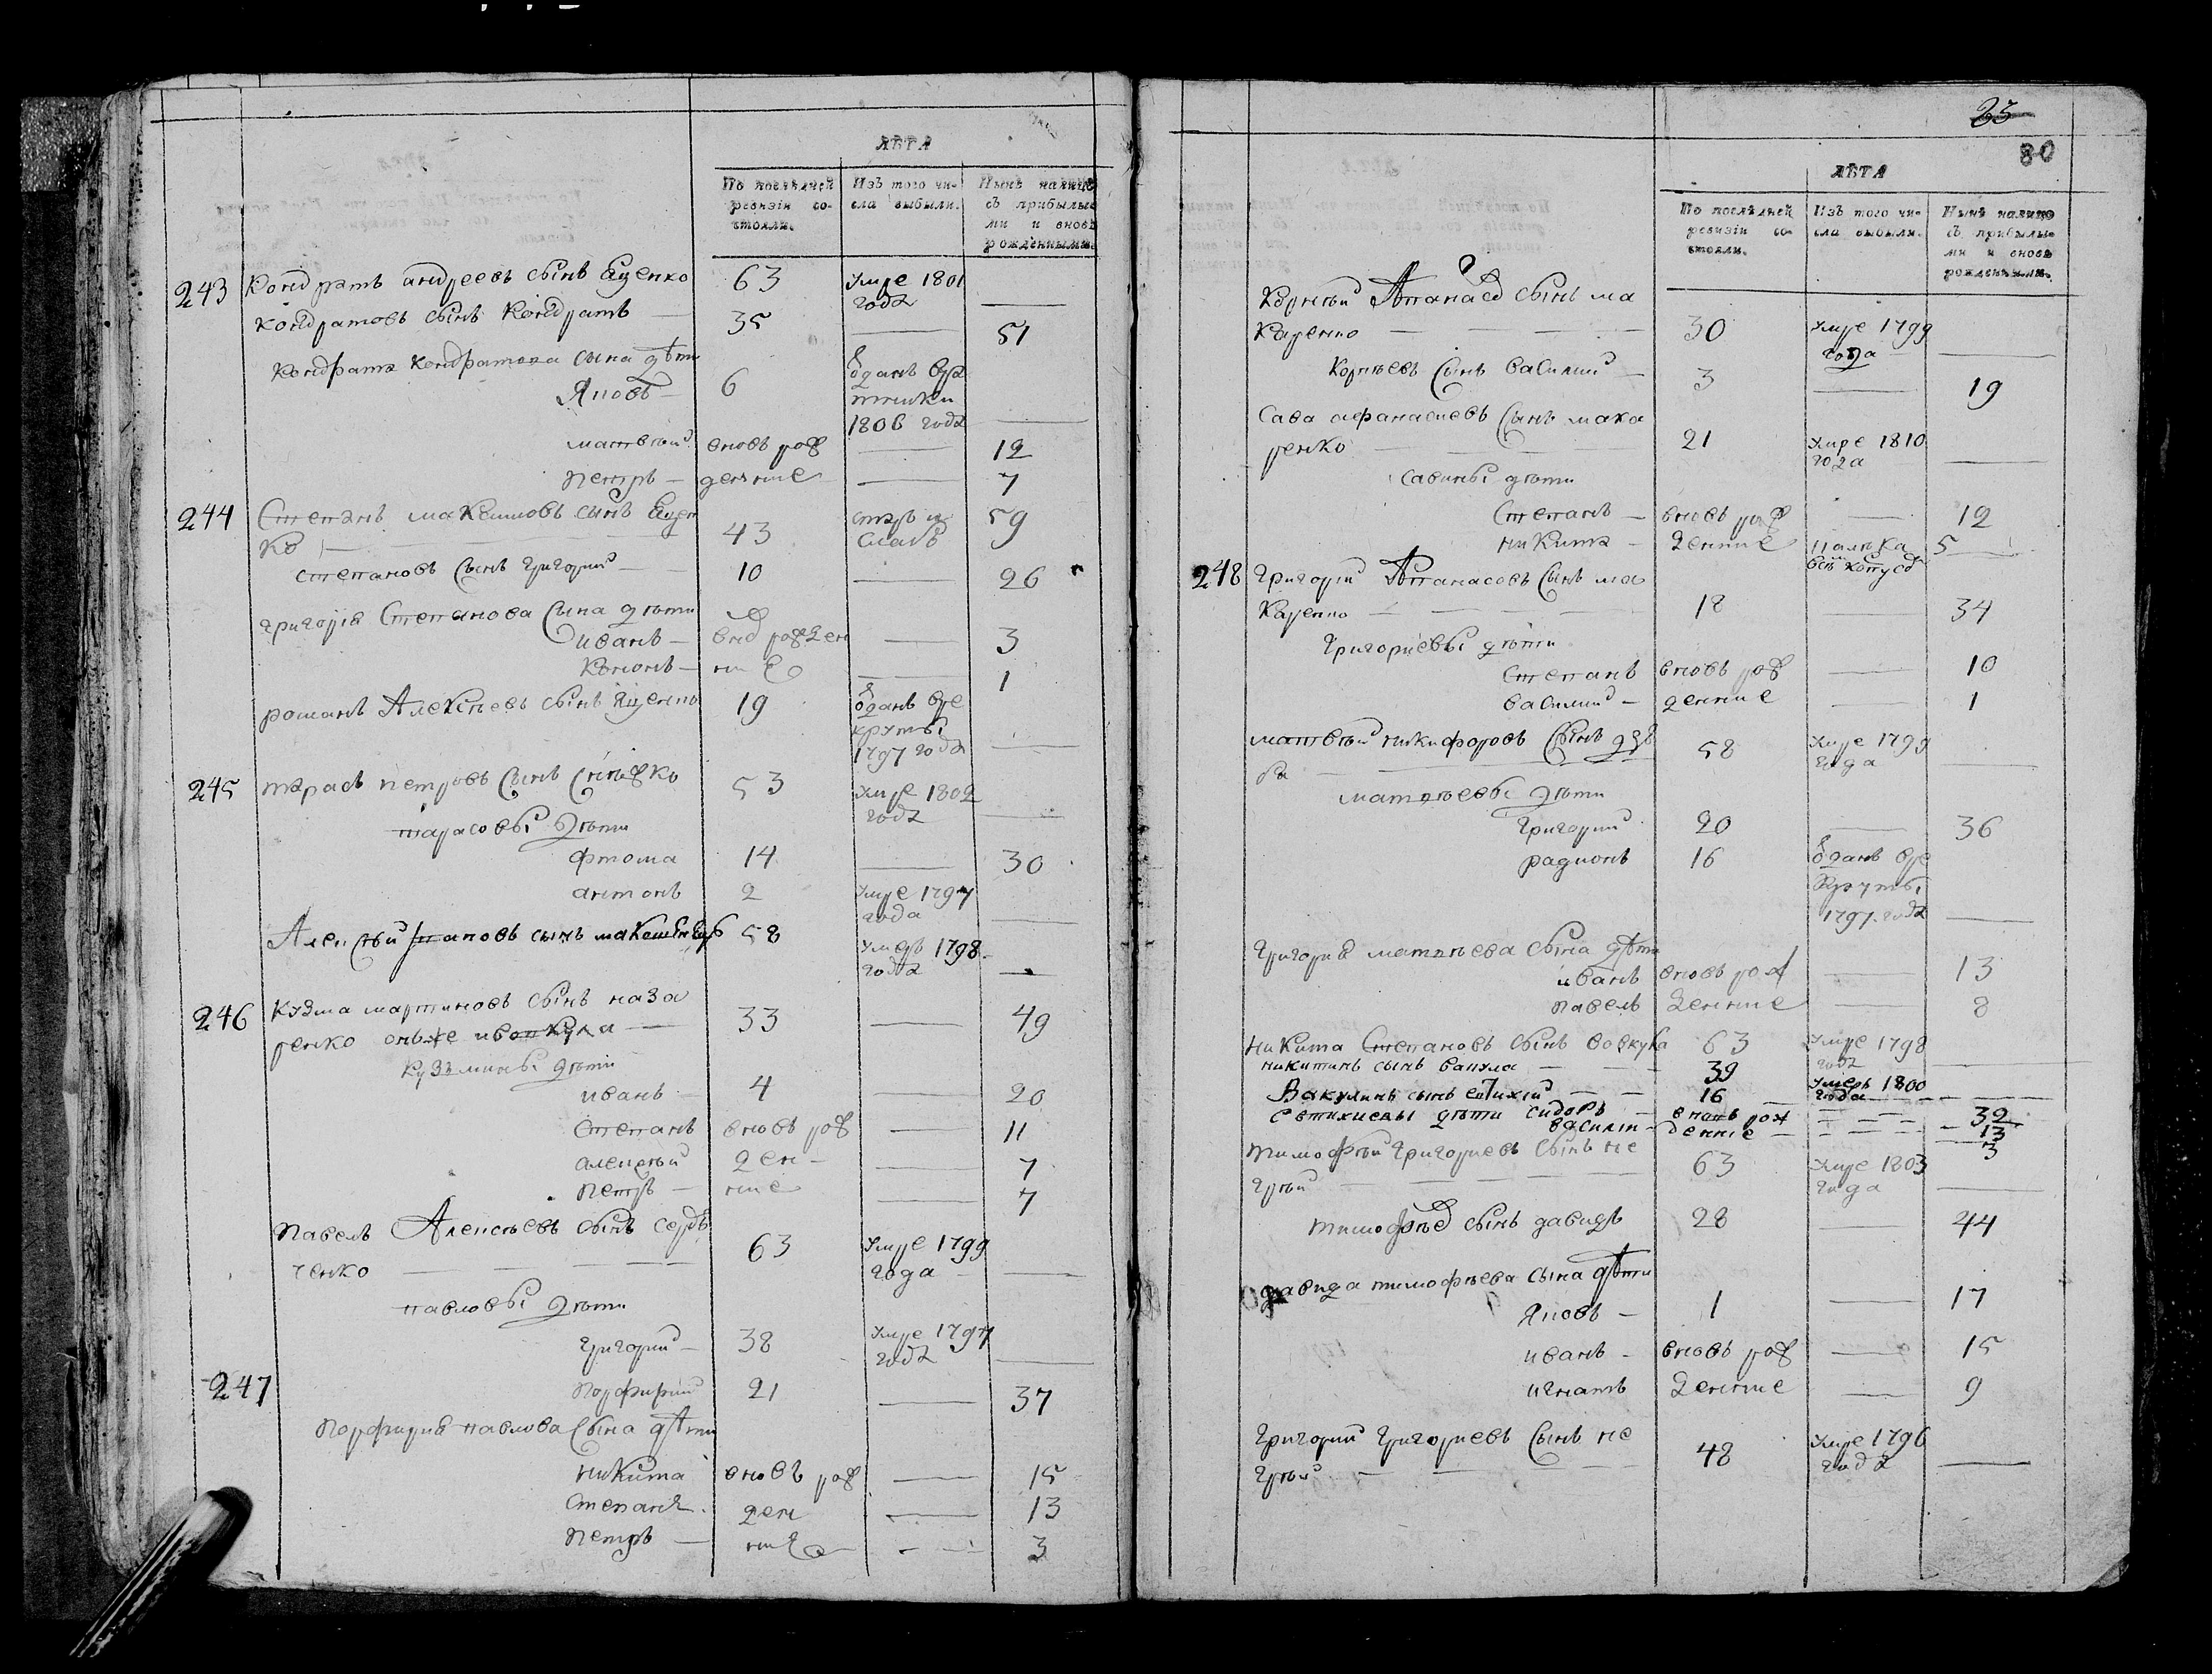 ЛѢТА
По послѣдней ревизіи со-стояли.
Изъ того чи-сла выбыли.
Нынѣ налицо съ прибылы-ми и вновь рожденными.
243 Кондратъ андреевъ сынъ Яценко 63 умре 1801 года —
Кондратовъ сынъ Кондратъ — 35 — 51
Кондрата Кондратова сына дѣти
Яковъ — 6 отданъ в 1806 года —
матвѣй вновь рож — 12
петръ — денние — 7
244 Степанъ максимовъ сынъ Яцен
ко — 43 старъ и слабъ 59
степановъ сынъ григорий — 10 — 26
григорія Степанова сына дѣти
иванъ — внов рожден — 3
Кононъ — ние — 1
романъ Алексѣевъ сынъ Яценко 19 отданъ в рекруты 1797 года —
245 тарасъ петровъ сынъ 53 умре 1802 года —
тарасовы дѣти
фтома 14 — 30
антонъ 2 умре 1797 года —
Алексѣй сынъ 58 умеръ 1798 года —
246 Кузма мартиновъ сынъ наза
ренко онъже 33 — 49
Кузьмины дѣти
иванъ — 4 — 20
Степанъ вновь рож — 11
алексѣй ден — 7
петръ — ние — 7
павелъ Алексѣевъ сынъ серд
ченко — 63 умре 1799 года —
павловы дѣти
григорий — 38 умре 1797 года —
247 порфирий 21 — 37
порфирия павлова сына дѣти
никита вновъ рож — 15
степанъ ден — 13
петръ — ние — 3
23
80
ЛѢТА
По послѣдней ревизіи со-стояли.
Изъ того чи-сла выбыли.
Нынѣ налицо съ прибылы-ми и вновь рожденными.
Корнѣй Атанасов сынъ ма
каренко — 30 умре 1799 года —
Корнѣевъ сынъ василий — 3 — 19
Сава афанасиевъ сынъ мака
ренко — 21 умре 1810 года —
савины дѣти
Степанъ — вновъ рож — 12
никита — дение 5
248 григорий Атанасовъ сынъ ма
каренко — 18 — 34
григориевы дѣти
степанъ вновъ рож — 10
василий — денние — 1
матвѣй никифоровъ сынъ дзю
ба — 58 умре 1799 года —
матвѣевы дѣти
григорий 20 — 36
радионъ 16 отданъ в рекруты 1797 года —
григория матвѣева сына дѣти
иванъ вновъ рож — 13
павелъ денние — 8
никита Степановъ сынъ 63 умре 1798 года —
никитинъ сынъ вакула — 39 умеръ 1800 года —
Вакулинъ сынъ евтихій — 16 — 32
евтихиевы дѣти сидоръ — вновъ рож — 13
василіи — денніе — 3
тимофѣй григориевъ сынъ не
грѣй — 63 умре 1803 года —
тимофѣев сынъ давидъ 28 — 44
давида тимофѣева сына дѣти
Яковъ — 1 — 17
иванъ — вновъ рож — 15
игнатъ денние — 9
григорий григориевъ сынъ не
грѣй — 48 умре 1796 года —